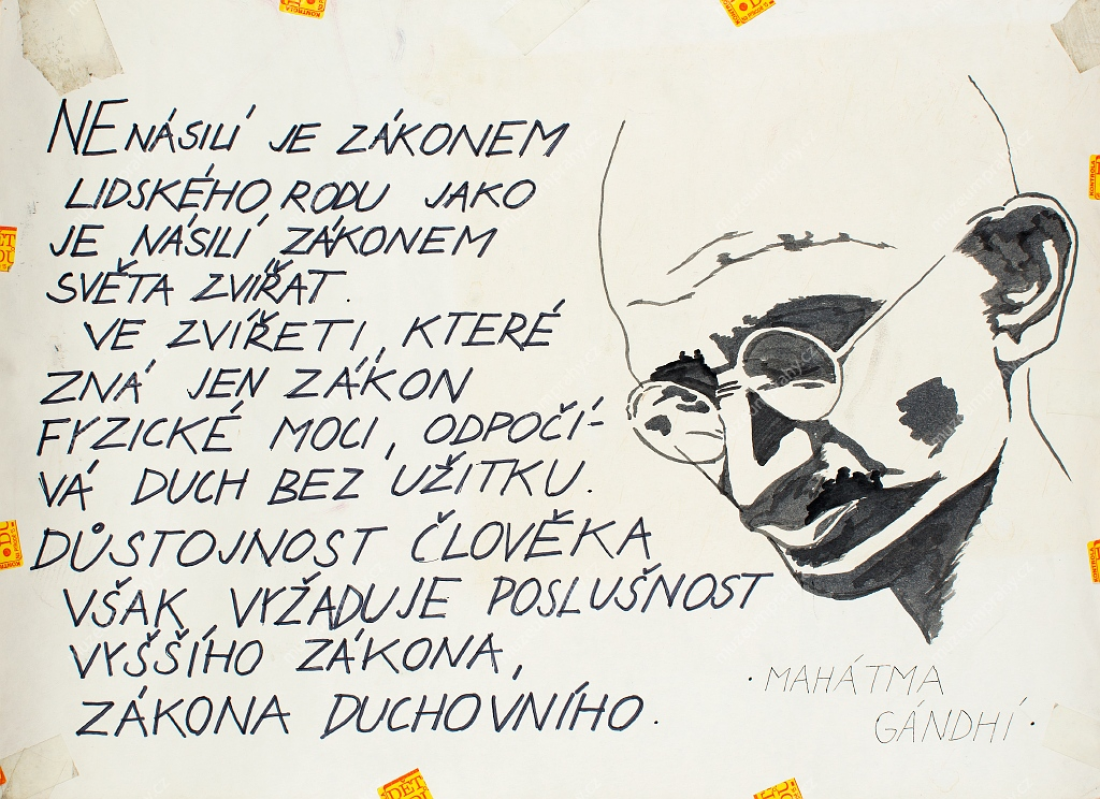 NENÁSILÍ JE ZÁKONEM
LIDSKÉHO RODU JAKO
JE NÁSILÍ ZÁKONEM
SVĚTA ZVÍŘAT.
VE ZVÍŘETI, KTERÉ
ZNÁ JEN ZÁKON
FYZICKÉ MOCI, ODPOČÍ-
VÁ DUCH BEZ UŽITKU.
DŮSTOJNOST ČLOVĚKA
VŠAK VYŽADUJE POSLUŠNOST
VYŠŠÍHO ZÁKONA,
ZÁKONA DUCHOVNÍHO.
· MAHÁTMA
GÁNDHÍ ·